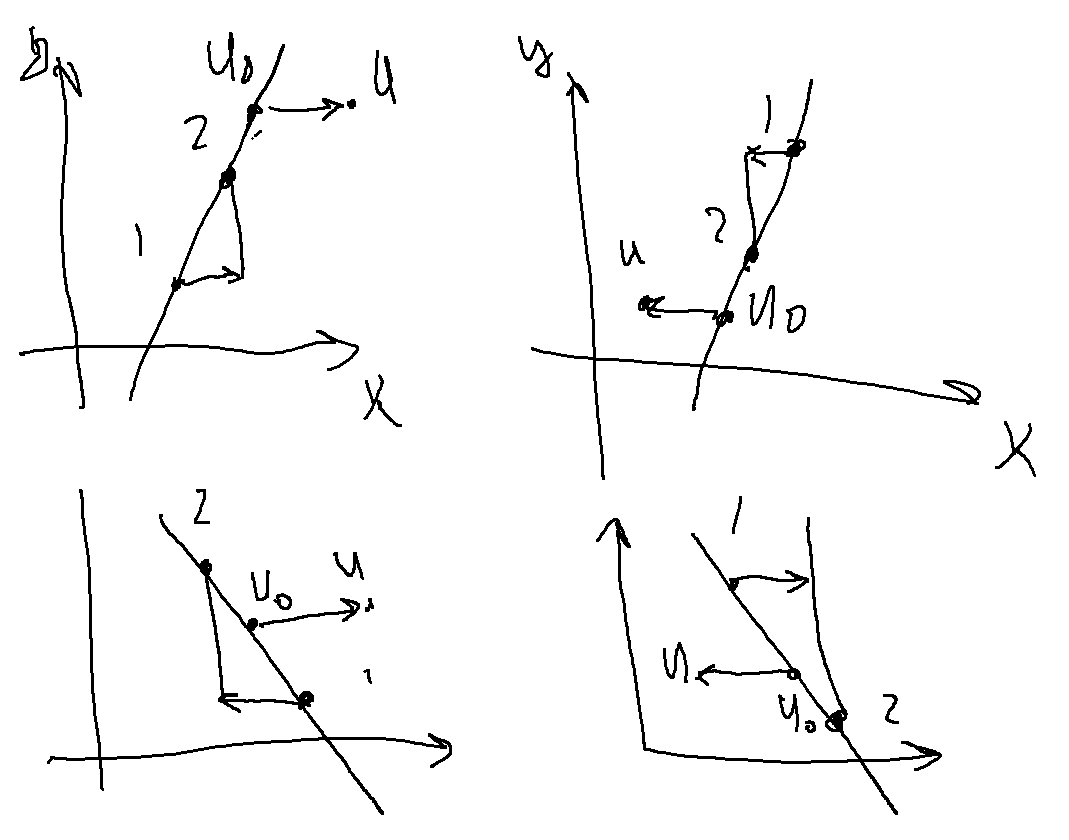 y U0 U
2
1
x
y
1
2
u
U0
x
2
U0 U
1
U
U0 2